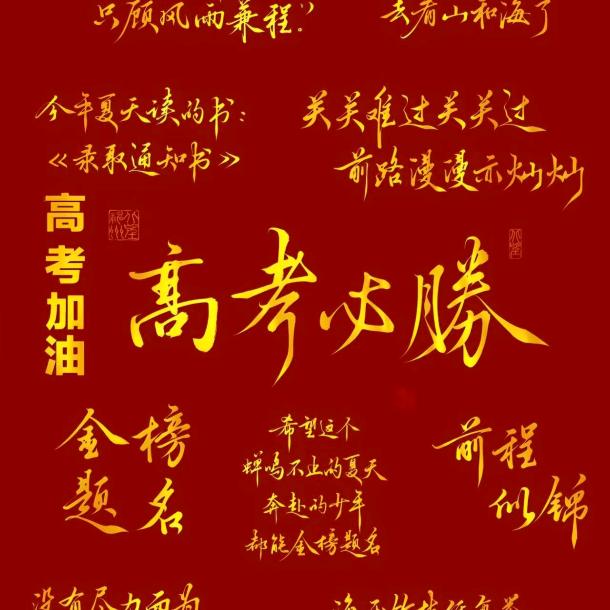 只顾风雨兼程."
去看山和海了
今年夏天读的书:
《录取通知书》
关关难过关关过
前路漫漫亦灿灿
高考加油
高考必勝
金榜
题名
希望这个
蝉鸣不止的夏天
奔赴的少年
都能金榜题名
前程
似锦
没有尽力而为